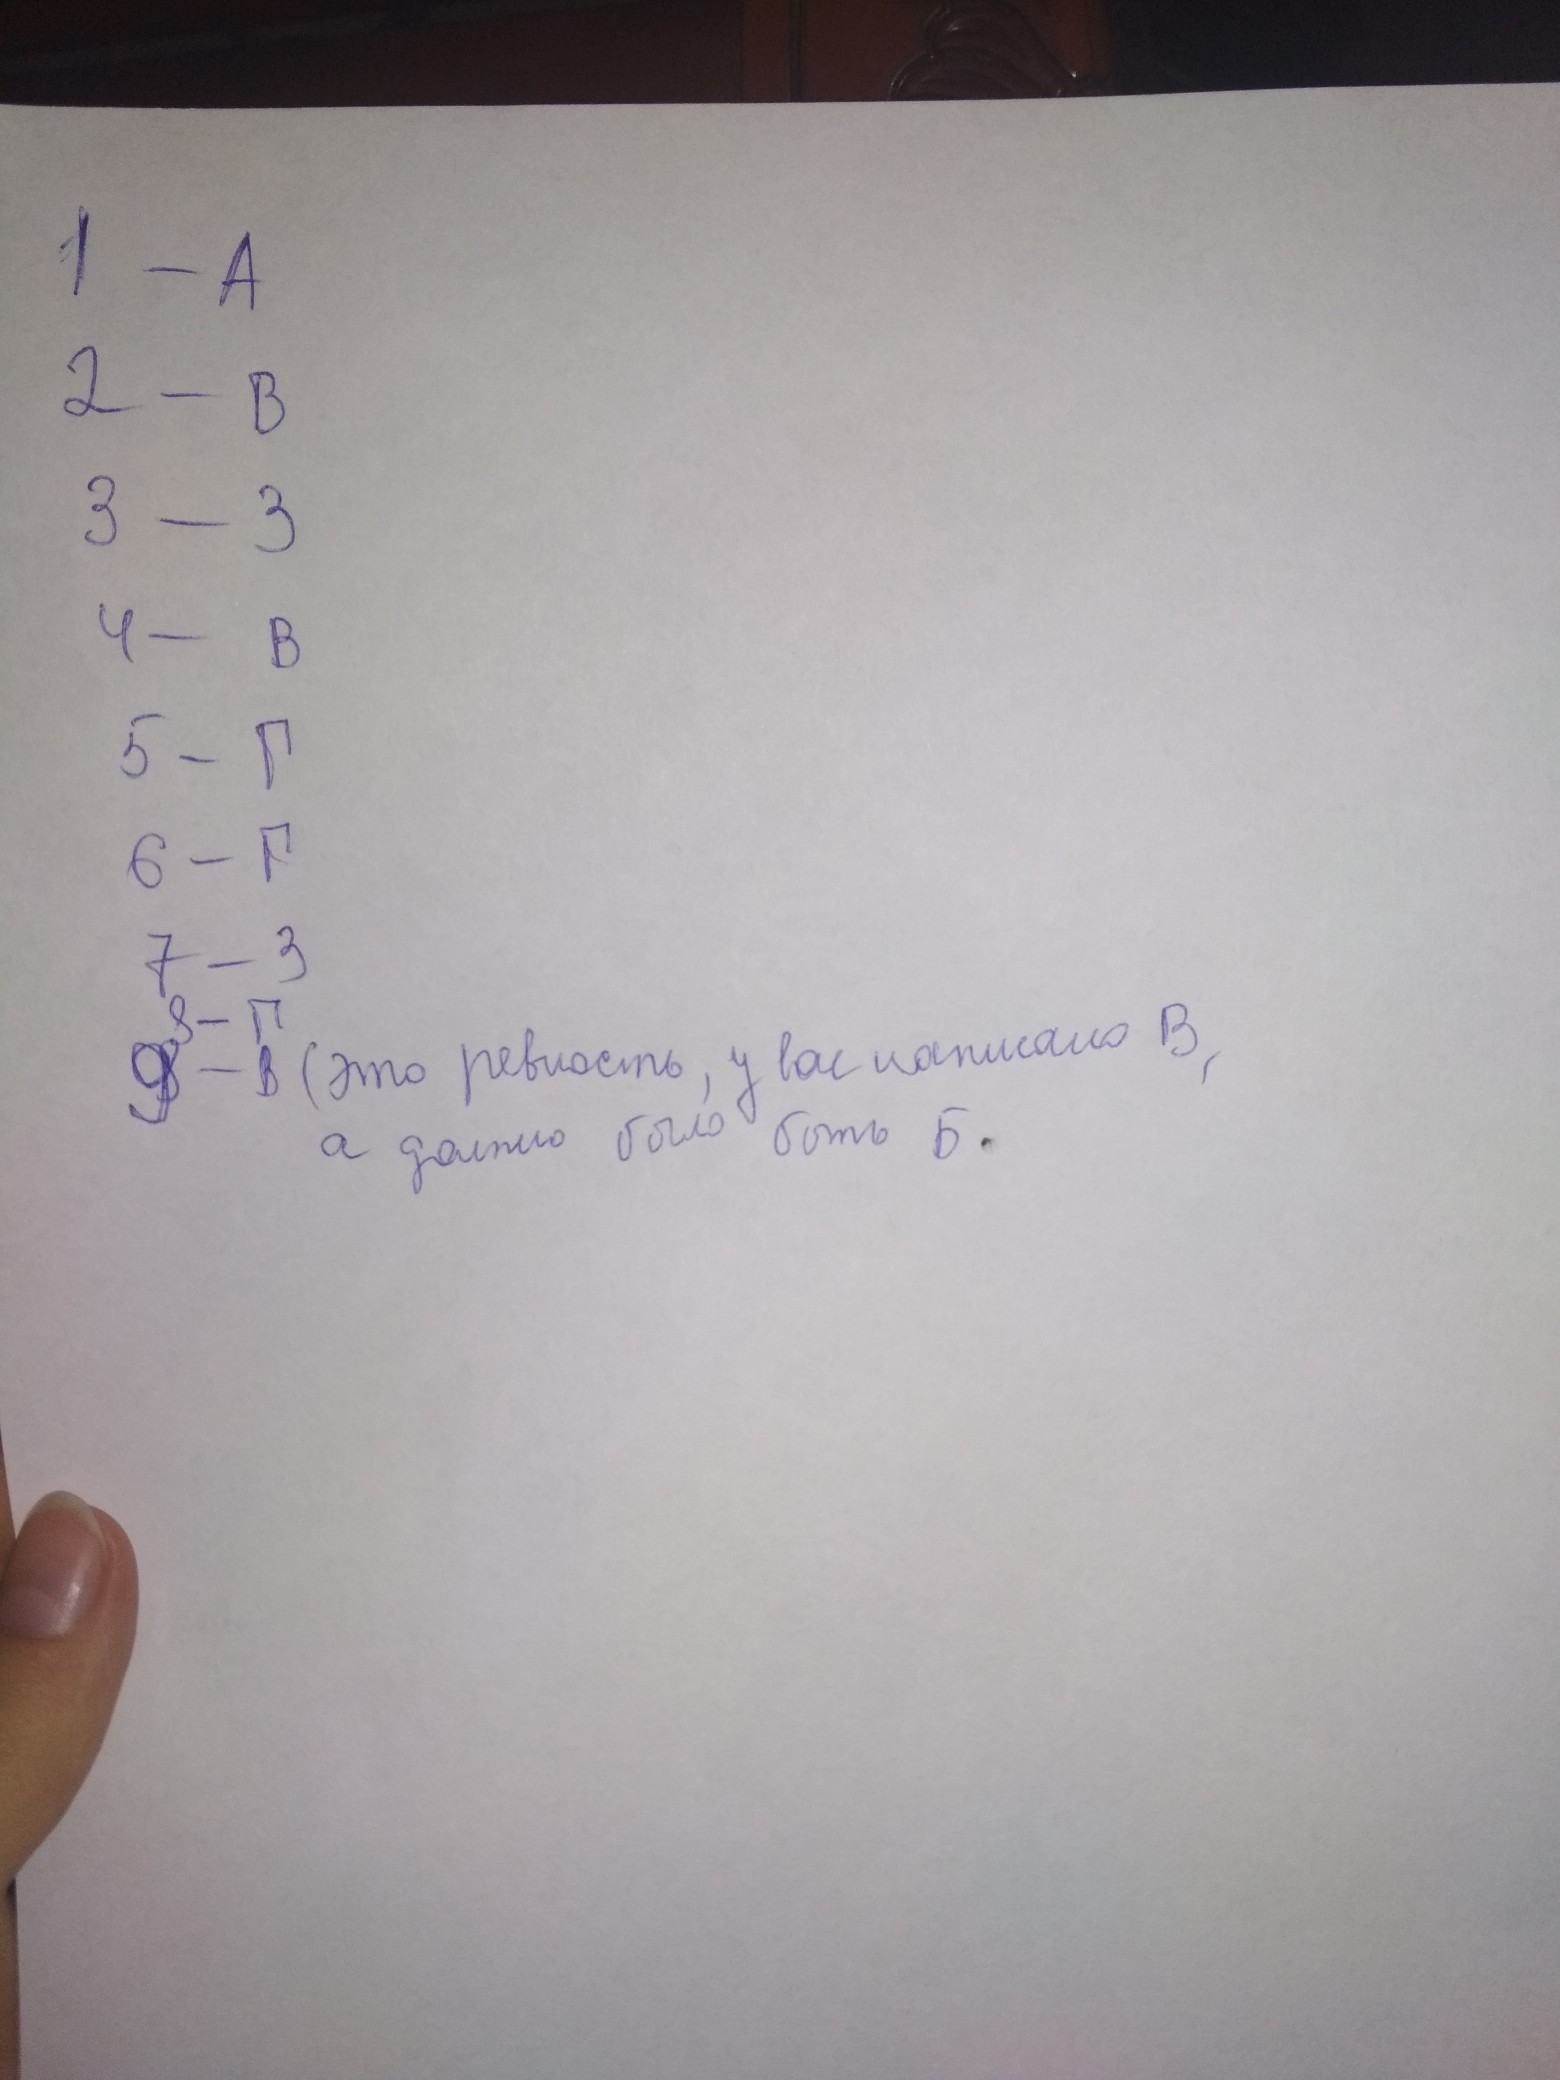 1 - А
2 - В
3 - З
4 - В
5 - Г
6 - Г
7 - З
8 - Г
9 - В (это ревность, у вас написано В,
а должно было быть Б.